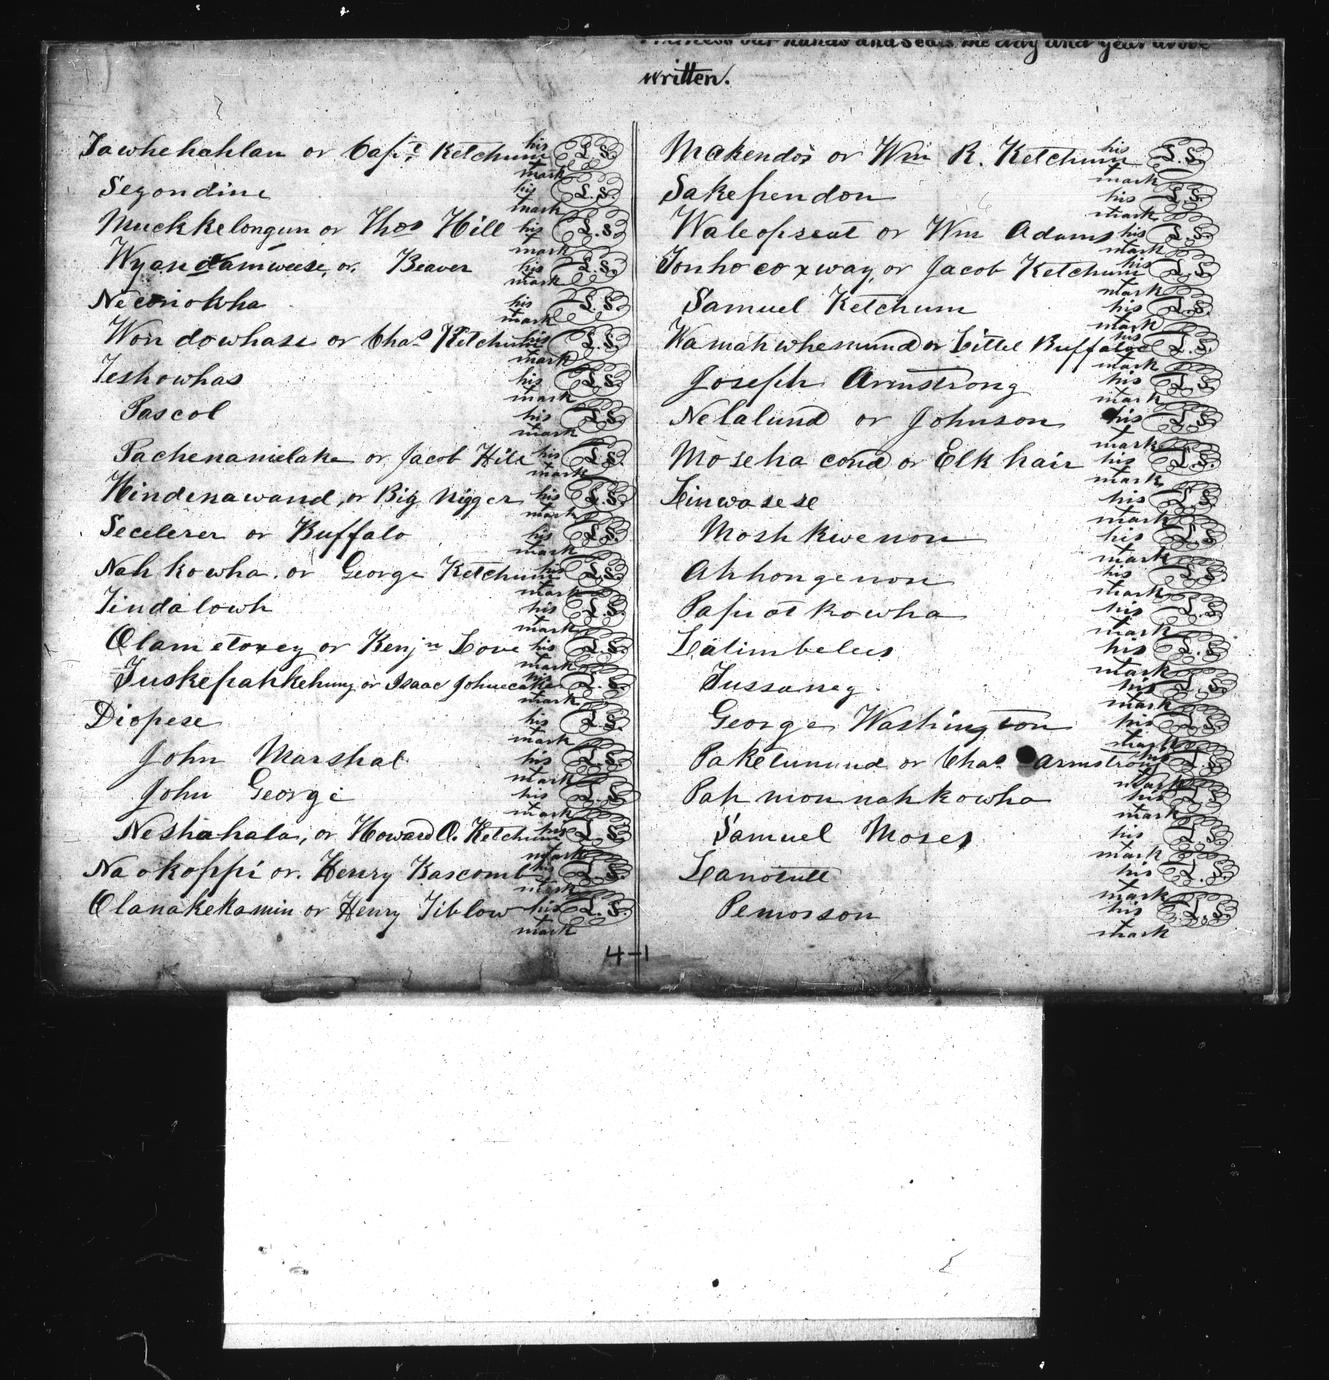 Witness our hands and seals the day and year above
written.
Tawhehahlan or Capt Ketchum his mark L.S.
Segondine his mark L.S.
Muckkelongun or Thos Hill his mark L.S.
Wyandamweese, or Beaver his mark L.S.
Neconokha his mark L.S.
Wondowhase or Chas Ketchum his mark L.S.
Teshowhas his mark L.S.
Pascol his mark L.S.
Pachenamelake or Jacob Hill his mark L.S.
Hindenawand, or Big Nigger his mark L.S.
Secelerer or Buffalo his mark L.S.
Nahkowha. or George Ketchum his mark L.S.
Tindalowh his mark L.S.
Olametoxey or Benjn Love his mark L.S.
Tuskepahkehung or Isaac Johnecake his mark L.S.
Diopese his mark L.S.
John Marshal his mark L.S.
John George his mark L.S.
Neshahala, or Howard O. Ketchum his mark L.S.
Naokoppi or. Henry Bascomb his mark L.S.
Olanakekamin or Henry Tiblow his mark L.S.
Makendos or Wm R. Ketchum his mark L.S.
Sakependon his mark L.S.
Waleopseat or Wm Adams his mark L.S.
Tonhocoxway, or Jacob Ketchum his mark L.S.
Samuel Ketchum his mark L.S.
Wamahwhemund or Littel Buffaloe his mark L.S.
Joseph Armstrong his mark L.S.
Nelalund or Johnson his mark L.S.
Mosehacond or Elkhair his mark L.S.
Linwasese his mark L.S.
Moshkwenon his mark L.S.
Ahhongenon his mark L.S.
Papiotkowha his mark L.S.
Lalimbelus his mark L.S.
Tussaney his mark L.S.
George Washington his mark L.S.
Paketunund or Chas. Armstrong his mark L.S.
Pahmounahkowha his mark L.S.
Samuel Moses his mark L.S.
Lanotutt his mark L.S.
Pemosson his mark L.S.
4-1